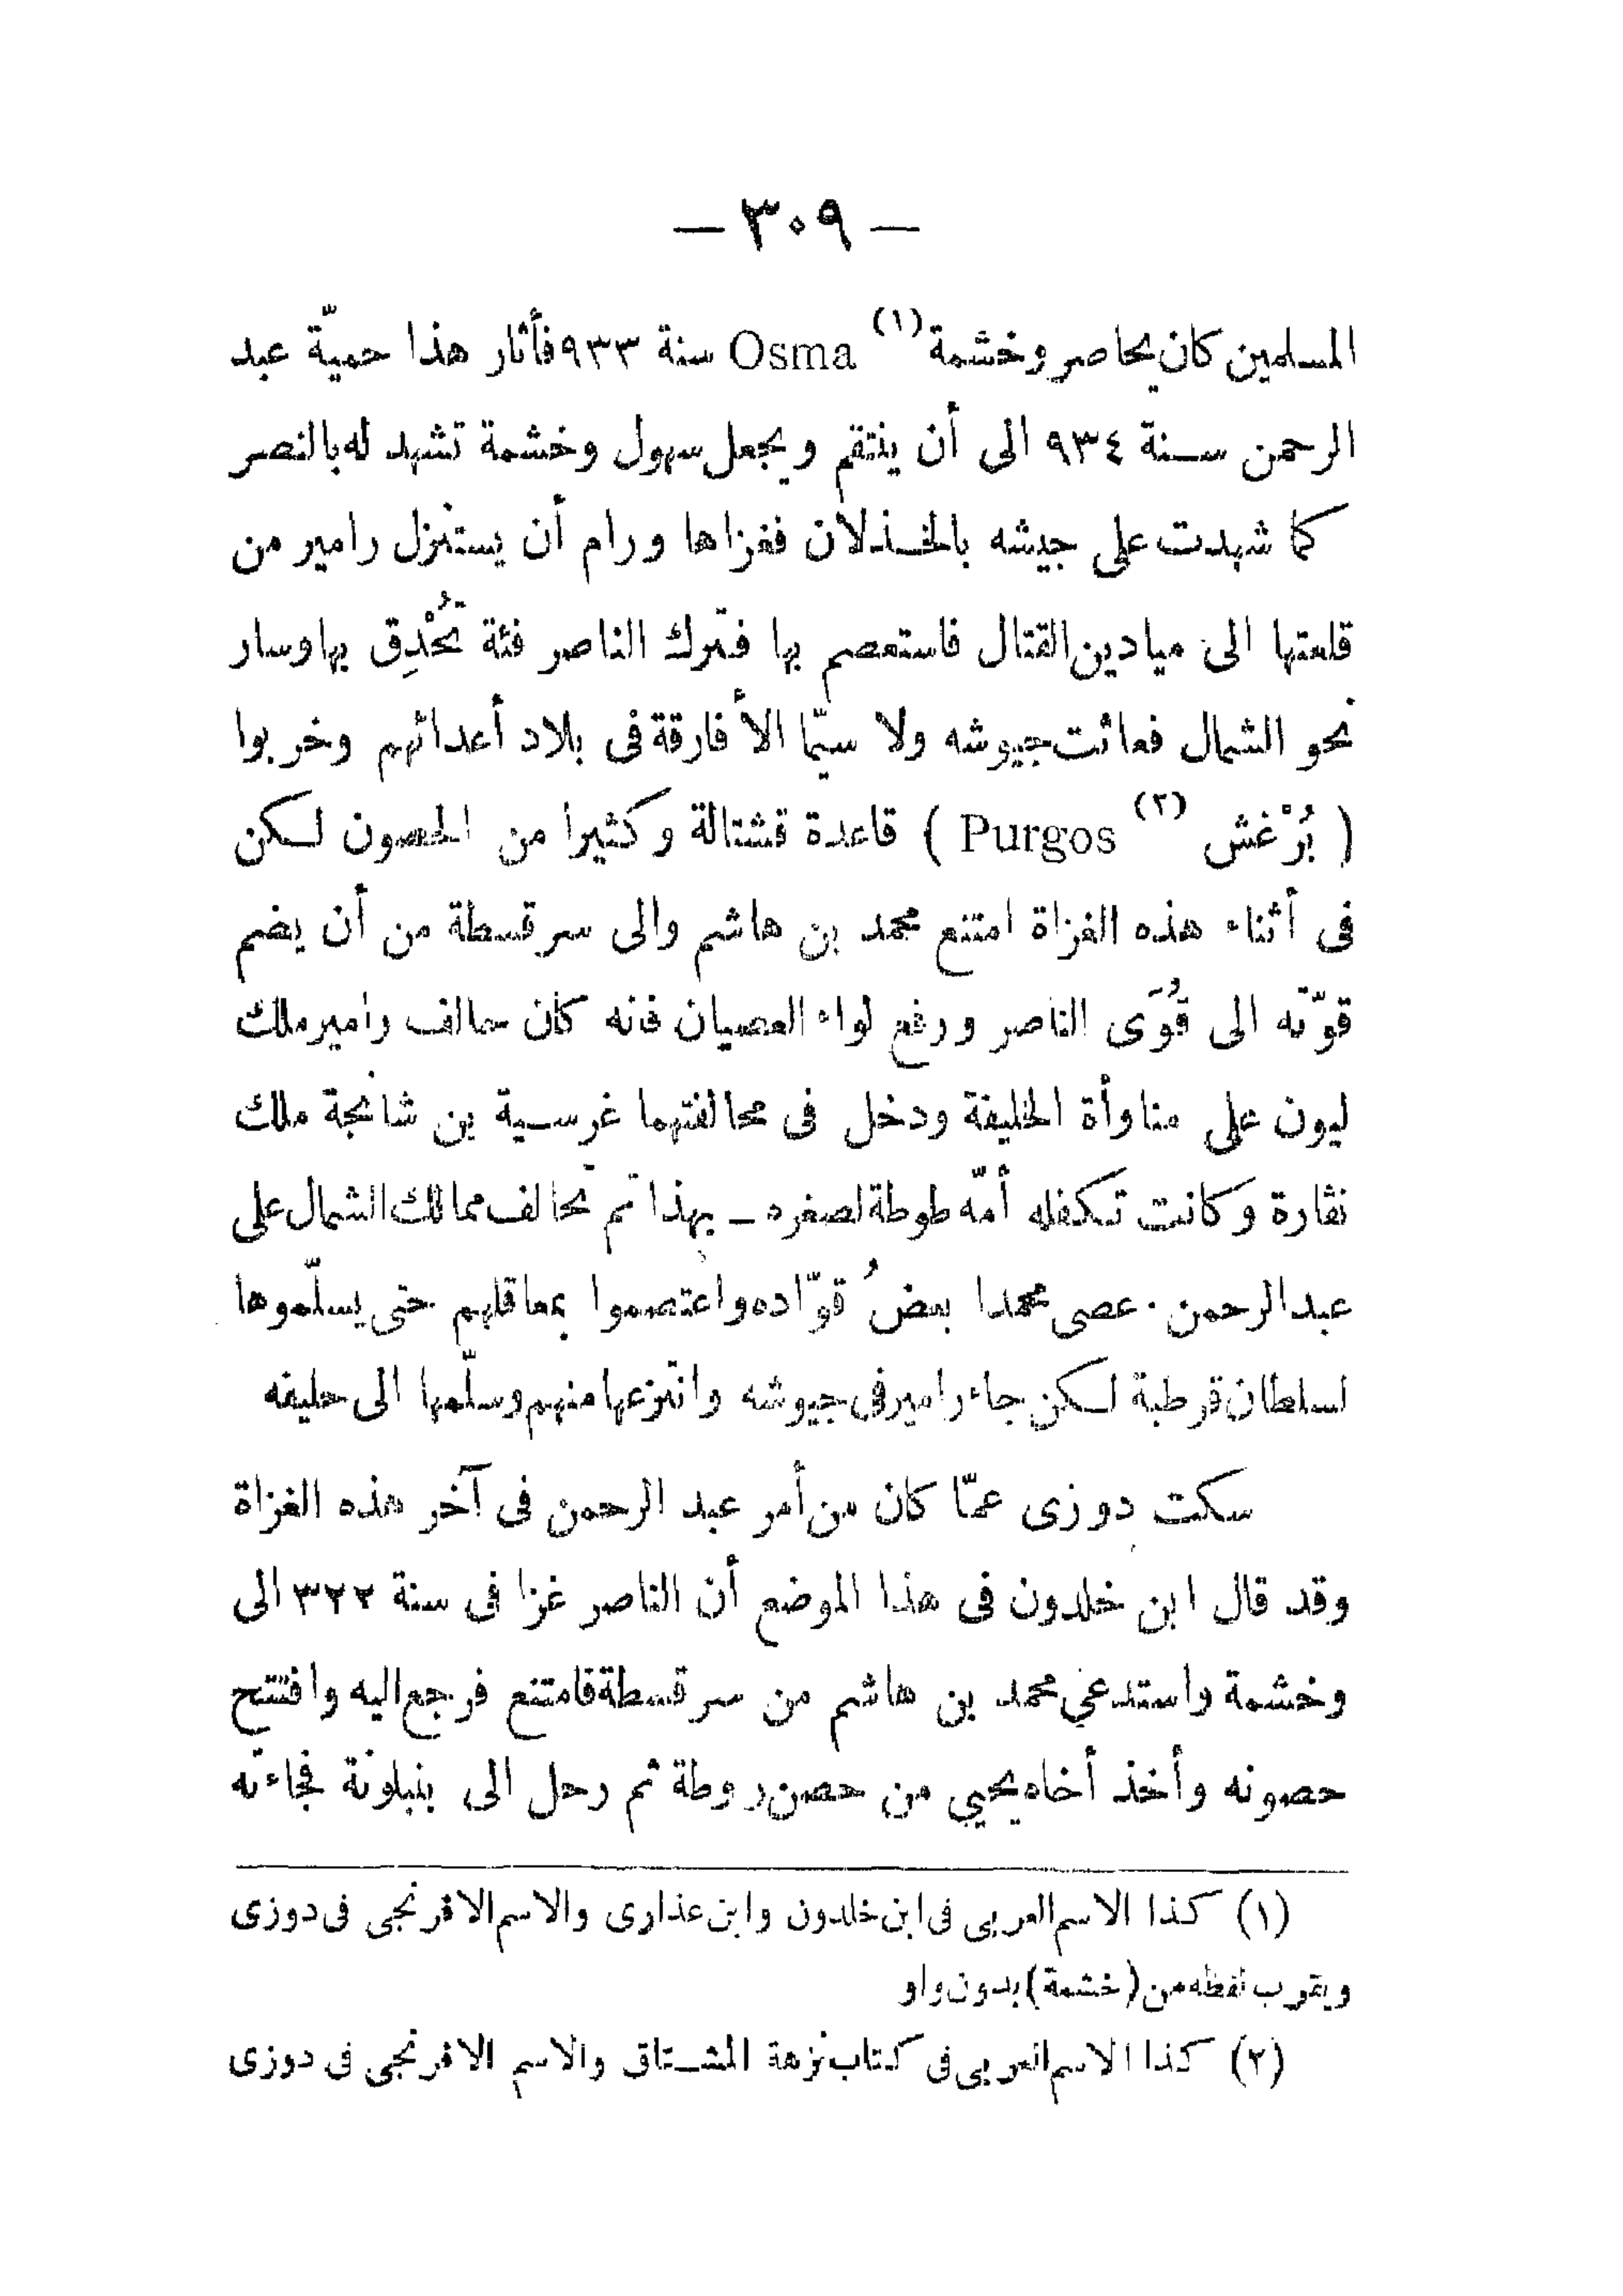 — ٣٠٩ —
المسلمين كان يحاصر وخشمة (١) Osma سنة ٩٣٣ فأثار هذا حميّة عبد
الرحمن سنة ٩٣٤ الى أن ينتقم ويجعل سهول وخشمة تشهد له بالنصر
كما شهدت على جيشه بالخذلان فغزاها ورام أن يستنزل رامير من
قلعتها الى ميادين القتال فاستعصم بها فترك الناصر فئة تُحْدِق بها وسار
نحو الشمال فعاثت جيوشه ولا سيّما الأفارقة فى بلاد أعدائهم وخربوا
( بُرْغش (٢) Purgos ) قاعدة قشتالة وكثيرا من الحصون لكن
فى أثناء هذه الغزاة امتنع محمد بن هاشم والى سرقسطة من أن يضم
قوّته الى قُوَى الناصر ورفع لواء العصيان فانه كان حالف رامير ملك
ليون على مناوأة الخليفة ودخل فى محالفتهما غرسية بن شانجة ملك
نفارة وكانت تكفله أمّه طوطة لصغره – بهذا تم تحالف ممالك الشمال على
عبد الرحمن . عصى محمدا بعضُ قوّاده واعتصموا بمعاقلهم حتى يسلّموها
لسلطان قرطبة لكن جاء رامير فى جيوشه وانتزعها منهم وسلّمها الى حليفه
سكت دوزى عمّا كان من أمر عبد الرحمن فى آخر هذه الغزاة
وقد قال ابن خلدون فى هذا الموضع أن الناصر غزا فى سنة ٣٢٢ الى
وخشمة واستدعي محمد بن هاشم من سرقسطة فامتنع فرجع اليه وافتتح
حصونه وأخذ أخاه يحيي من حصن روطة ثم رحل الى بنبلونة فجاءته
(١) كذا الاسم العربى فى ابن خلدون وابن عذارى والاسم الافرنجى فى دوزى
ويقرب لفظه من (خشمة) بدون واو
(٢) كذا الاسم العربى فى كتاب نزهة المشتاق والاسم الافرنجى فى دوزى